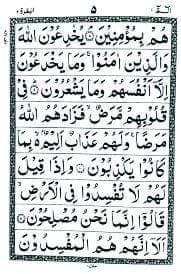 البقرة ٢
٥
الٓمّٓ ١
هُمْ بِمُؤْمِنِيْنَ ۞ يُخٰدِعُوْنَ اللّٰهَ
وَالَّذِيْنَ اٰمَنُوْا ۚ وَمَا يَخْدَعُوْنَ
اِلَّاۤ اَنْفُسَهُمْ وَمَا يَشْعُرُوْنَ ۞ فِيْ
قُلُوْبِهِمْ مَّرَضٌ ۙ فَزَادَهُمُ اللّٰهُ
مَرَضًا ۚ وَلَهُمْ عَذَابٌ اَلِيْمٌۢ ۙ بِمَا
كَانُوْا يَكْذِبُوْنَ ۞ وَاِذَا قِيْلَ
لَهُمْ لَا تُفْسِدُوْا فِي الْاَرْضِ ۙ
قَالُوْۤا اِنَّمَا نَحْنُ مُصْلِحُوْنَ ۞
اَلَاۤ اِنَّهُمْ هُمُ الْمُفْسِدُوْنَ